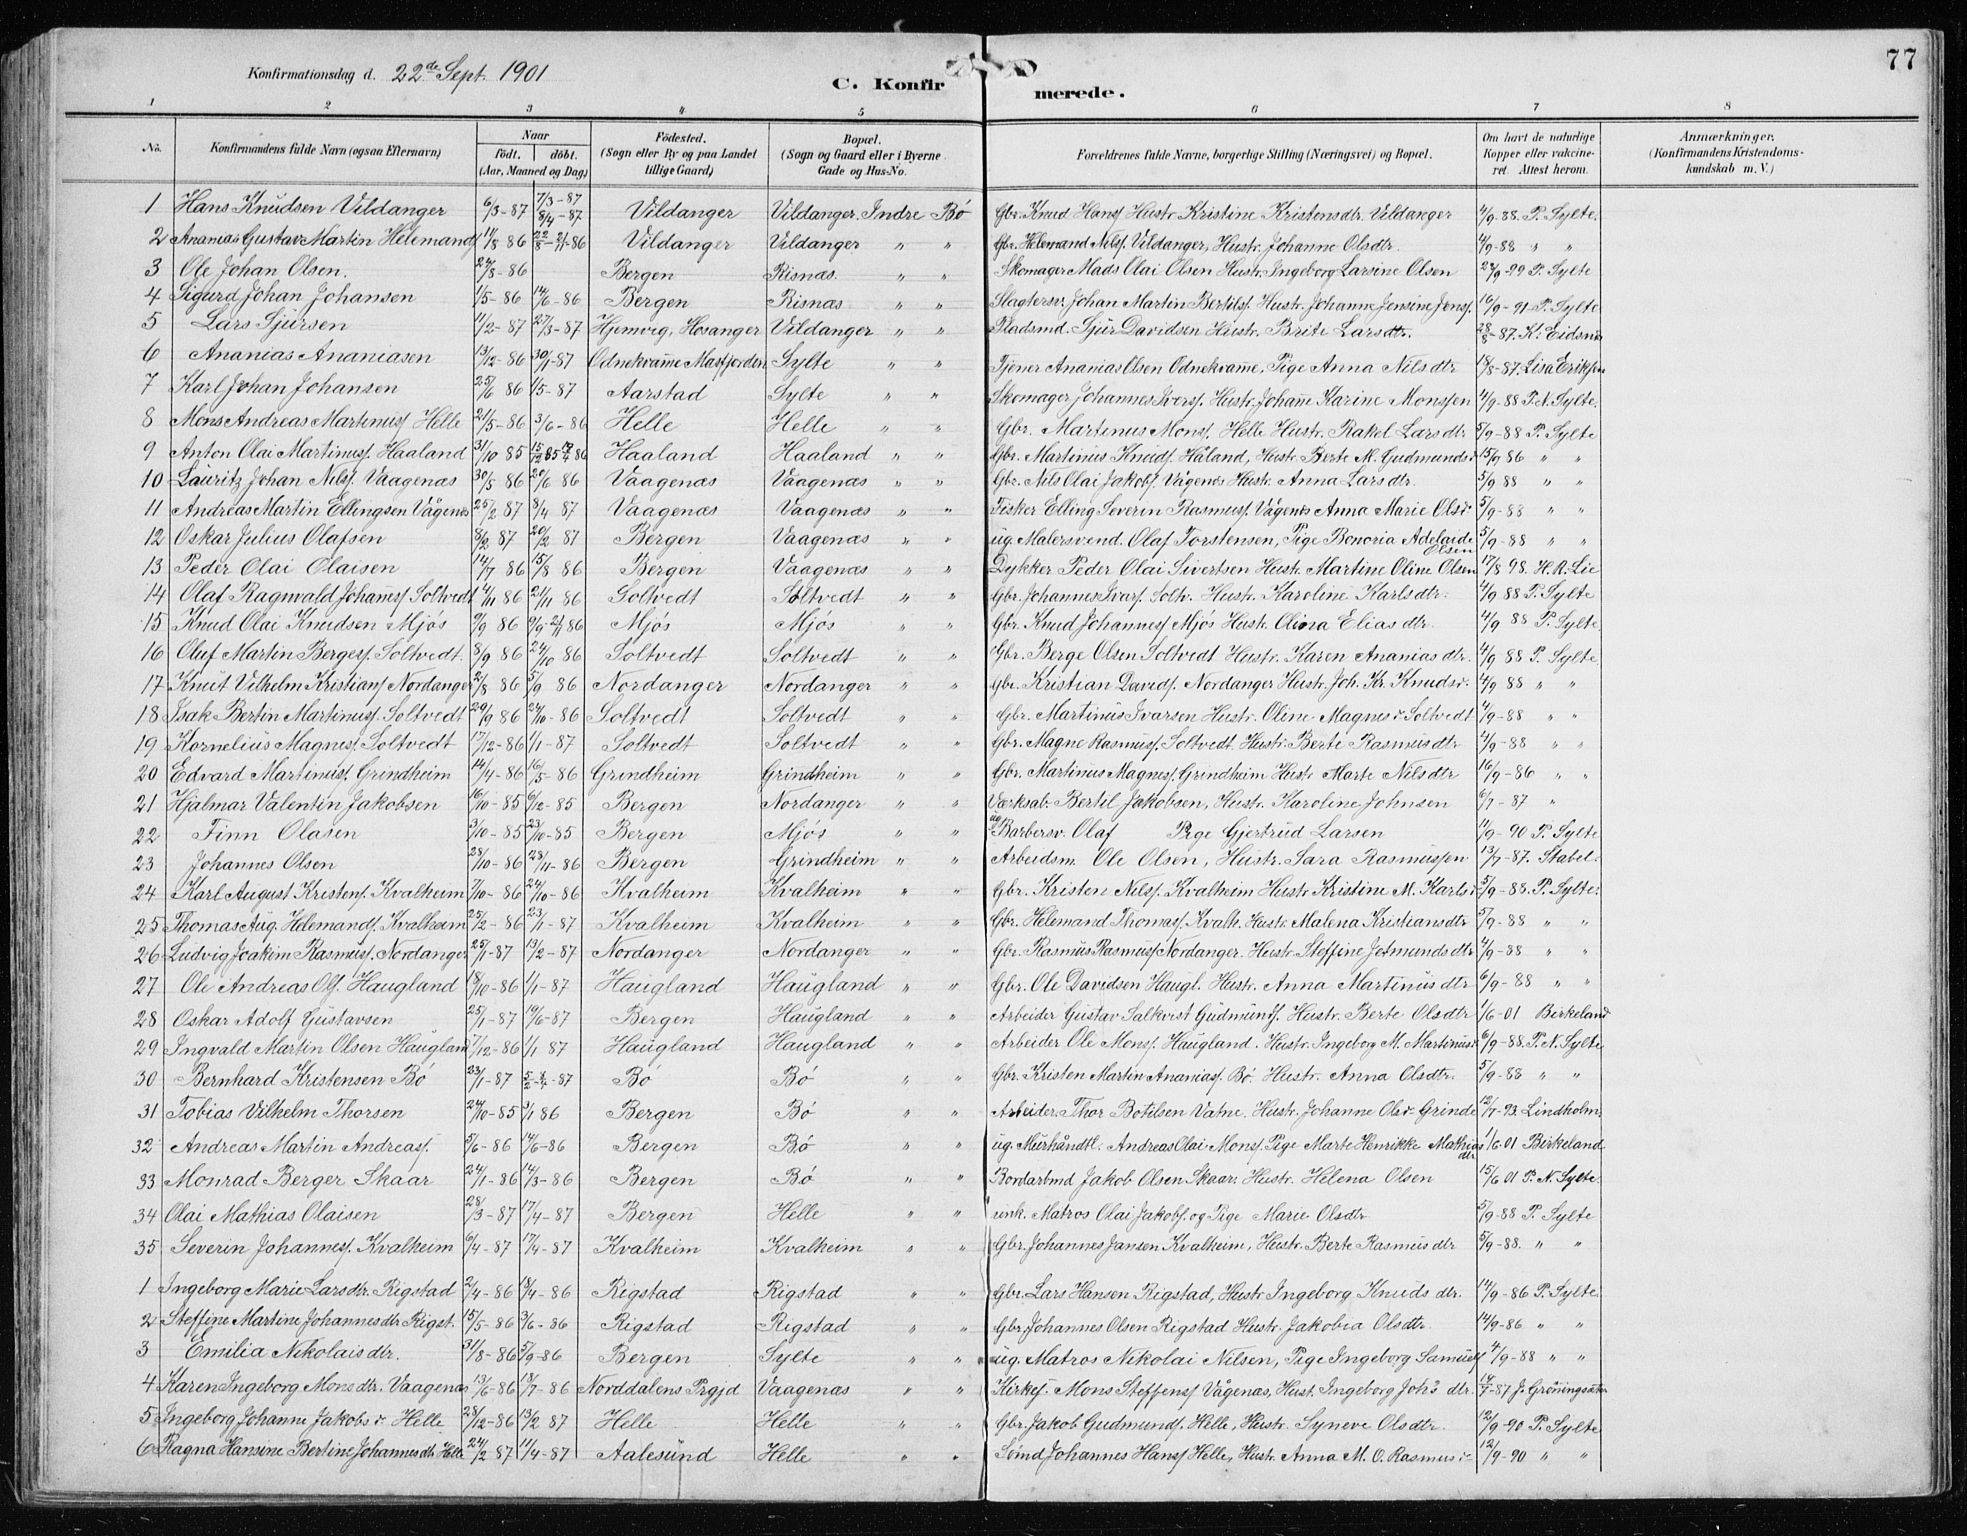 77
Konfirmationsdag d. 22de Sept. 1901
C. Konfirmerede.
1 2 3 4 5 6 7 8
No. Konfirmandens fulde Navn (ogsaa Efternavn) Naar født, døbt. (Aar, Maaned og Dag) Fødested. (Sogn eller By og paa Landet tillige Gaard) Bopæl. (Sogn og Gaard eller i Byerne Gade og Hus-No. Forældrenes fulde Navne, borgerlige Stilling (Næringsvei) og Bopæl. Om havt de naturlige Kopper eller vakcineret. Attest herom. Anmærkninger. (Konfirmandens Kristendomskundskab m. V.)
1 Hans Knudsen Vildanger 6/3-87 7/3-87 8/4-87 Vildanger Vildanger, Indre Bö Gbr. Knud Hans. Hustr. Kristine Kristensdtr. Vildanger 4/9-88. P. Sylte.
2 Ananias Gustav Martin Helemands. 11/8 86 22/8-21/11-86 Vildanger Vildanger " " Gbr. Helemand Nils. Vildanger, Hustr. Johanne Olsdtr. 4/9-88 " "
3 Ole Johan Olsen. 24/8-86 Bergen Risnæs. " " Skomager Mads Olai Olsen Hustr. Ingeborg Larsine Olsen 22/9-99 P. Sylte
4 Sigurd Johan Johansen 1/5-86 14/6-86 Bergen Risnæs " " Slagtersv. Johan Martin Bertils. Hustr. Johanne Jensine Jens. 16/9-91 P. Sylte
5 Lars Sjursen 11/2-87 27/3-87 Hjemvig, Hosanger Vildanger " " Pladsmd. Sjur Davidsen Hustr. Brite Larsdtr. 28/8-87. K. Eidsnes
6 Ananias Ananiasen 13/12-86 30/1-87 Odnekvamme Masfjorden Sylte " " Tjener Ananias Olsen Odnekvame, Pige Anna Nilsdtr 18/8-87. Lisa Eriksen
7 Karl Johan Johansen 25/6 86 1/5-87 Aarstad Sylte " " Skomager Johannes Ivers. Hustr. Johane Karine Monssen 4/9-88 P. N. Sylte.
8 Mons Andreas Martinus. Helle 21/5-86 3/6-86 Helle Helle " " Gbr. Martinus Mons. Helle Hustr. Rakel Larsdtr 5/9-88 P. Sylte
9 Anton Olai Martinus. Haaland 31/10 85 Haaland Haaland " " Gbr. Martinus Knuds. Håland, Hustr. Berte M. Gudmunds. 15/9 86 " "
10 Lauritz Johan Nils. Vaagenæs 30/5 86 20/6 86 Vaagenæs Vaagenæs " " Gbr. Nils Olai Jakobs. Vågenes Hustr. Anna Larsdtr. 5/9 88 " "
11 Andreas Martin Ellingsen Vågenes 25/2 87 8/4 87 Vaagenæs Vaagenæs " " Fisker Elling Severin Rasmus. Vågenes Anna Marie Olsdr 5/9-88 " "
12 Oskar Julius Olafsen 8/2 87 20/2 87 Bergen Vaagenæs " " ug. Malersvend. Olaf Torstensen, Pige Bonoria Adelaide Olsen 5/9-88 " "
13 Peder Olai Olaisen 14/7 86 15/8 86 Bergen Vaagenæs " " Dykker Peder Olai Sivertsen Hustr. Martine Oline Olsen 17/8 98. H. R. Lie
14 Olaf Ragnvald Johanns. Soltvedt 4/11 86 21/11 86 Soltvedt Soltvedt " " Gbr. Johannes Ivars. Soltv. Hustr. Karoline Karlsdtr. 4/9 88 P. Sylte
15 Knud Olai Knudsen Mjös 9/9 86 9/9-21/11 86 Mjös Mjös " " Gbr. Knud Johannes. Mjös Hustr. Olina Eliasdtr. 4/9 88 P. Sylte.
16 Oluf Martin Berges. Soltvedt. 8/9 86 24/10 86 Soltvedt Soltvedt " " Gbr. Berge Olsen Soltvedt Hustr. Karen Ananiasdtr. 4/9 88 P. Sylte.
17 Knut Vilhelm Kristians. Nordanger 2/8 86 5/9 86 Nordanger Nordanger " " Gbr. Kristian Davids. Nordanger Hustr. Joh. Kr. Knudsr. 4/9 88 " "
18 Isak Bertin Martinus. Soltvedt 29/9 86 24/10-86 Soltvedt Soltvedt " " Gbr. Martinus Ivarsen Hustr. Oline Magnesdr Soltvedt 4/9-88 " "
19 Kornelius Magnes. Soltvedt 17/12-86 1/1-87 Soltvedt Soltvedt " " Gbr. Magne Rasmus. Soltvedt. Hustr. Berte Rasmusdtr 4/9-88 " "
20 Edvard Martinus. Grindheim 14/4-86 16/5-86 Grindheim Grindheim " " Gbr. Martinus Magnes. Grindheim Hustr Marte Nilsdtr 16/9-86 " "
21 Hjalmar Valentin Jakobsen 16/10-85 6/12-85 Bergen Nordanger " " Værksab. Bertil Jakobsen, Hustr. Karoline Johnsen 6/7-87 "
22 Finn Olasen 3/10-85 23/10-85 Bergen Mjös " " ug Barbersv. Olaf Pige Gjertrud Larsen 11/9-90 P. Sylte
23 Johannes Olsen 28/10-86 28/11-86 Bergen Grindheim " " Arbeidsm. Ole Olsen, Hustr. Sara Rasmussen 13/7-87. Stabel.
24 Karl August Kristens. Kvalheim 7/10-86 24/10-86 Kvalheim Kvalheim " " Gbr. Kristen Nils. Kvalheim Hustr Kristine M. Karlsr. 5/9-88. P. Sylte.
25 Thomas Aug. Helemands. Kvalheim 25/2-86 23/1-87 Kvalheim Kvalheim " " Gbr. Helemand Thomas. Kvalh. Hustr. Malena Kristiansdtr 5/9-88 " "
26 Ludvig Joakim Rasmus. Nordanger 25/1-87 13/2-87 Nordanger Nordanger " " Gbr. Rasmus Rasmus. Nordanger. Hustr. Steffine Jetmundsdtr 4/9-88 " "
27 Ole Andreas Ols. Haugland 18/10-86 1/1-87 Haugland Haugland " " Gbr. Ole Davidsen Haugl. Hustr. Anna Martinusdtr 6/9-88 " "
28 Oskar Adolf Gustavsen 25/1-87 19/6-87 Bergen Haugland " " Arbeider Gustav Salkvist Gudmunds. Hustr. Berte Olsdtr 1/6-01 Birkeland
29 Ingvald Martin Olsen Haugland 7/12-86 1/1 87 Haugland Haugland " " Arbeider Ole Mons. Haugland. Hustr. Ingeborg M. Martinusr. 6/9-88. P. N. Sylte
30 Bernhard Kristensen Bö 23/1-87 Bö Bö " " Gbr. Kristen Martin Ananias. Bö. Hustr. Anna Olsdtr. 5/9-88 " "
31 Tobias Vilhelm Thorsen 24/10-85 3/1 86 Bergen Bö " " Arbeider. Thor Botilsen Vatne. Hustr. Johanne Olsdr. Grinde 12/7-93. Lindholm.
32 Andreas Martin Andreas. 5/6-86 14/6-86 Bergen Bö " " ug. Murhåndtl. Andreas Olai Mons. Pige Marte Henrikke Mathiasdtr 1/6.01 Birkeland
33 Monrad Berger Skaar 24/1-86 14/3-86 Bergen Bö " " Bordarbmd Jakob Olsen Skaar. Hustr. Helena Olsen 15/6 01 P. N. Sylte.
34 Olai Mathias Olaisen 28/3-87 17/4-87 Bergen Helle " " unk. Matros Olai Jakobs. og Pige Marie Olsdtr 5/9-88 P. Sylte
35 Severin Johannes. Kvalheim 6/4-87 17/4-87 Kvalheim Kvalheim " " Gbr. Johannes Jansen Kvalheim, Hustr. Berte Rasmusdtr 5/9-88. " "
1 Ingeborg Marie Larsdtr. Rigstad 2/4-86 18/4-86 Rigstad Rigstad " " Gbr. Lars Hansen Rigstad, Hustr Ingeborg Knudsdtr. 14/9-86 P. Sylte.
2 Steffine Martine Johannesdtr Rigst. 15/5-86 3/6-86 Rigstad Rigstad " " Gbr. Johannes Olsen Rigstad Hustr. Jakobia Olsdtr. 14/9-86 " "
3 Emilia Nikolaisdtr. 31/8-86 5/9-86 Bergen Sylte " " ug. Matros Nikolai Nilsen, Pige Ingeborg Samuels 4/9-88 " "
4 Karen Ingeborg Monsdtr. Vaagenæs 13/6-86 18/7-86 Norddalens Prgjd Vaagenæs " " Kirkes. Mons Steffens. Vågenæs, Hust. Ingeborg Joh's dtr. J. Gröningsæter
5 Ingeborg Johanne Jakobsdr Helle 28/12-86 13/2 87 Helle Helle " " Gbr. Jakob Gudmunds. Helle, Hustr. Syneve Olsdtr. 12/9-90 P. Sylte
6 Ragna Hansine Bertine Johannesdtr Helle 24/2 87 11/4-87 Aalesund Helle " " Sømd Johannes Hans. Helle, Hustr. Anna M. O. Rasmusdr 12/9-90 " "